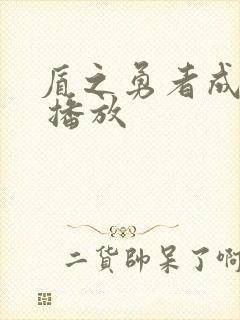 盾之勇者成
播放
二貨帥呆了啊